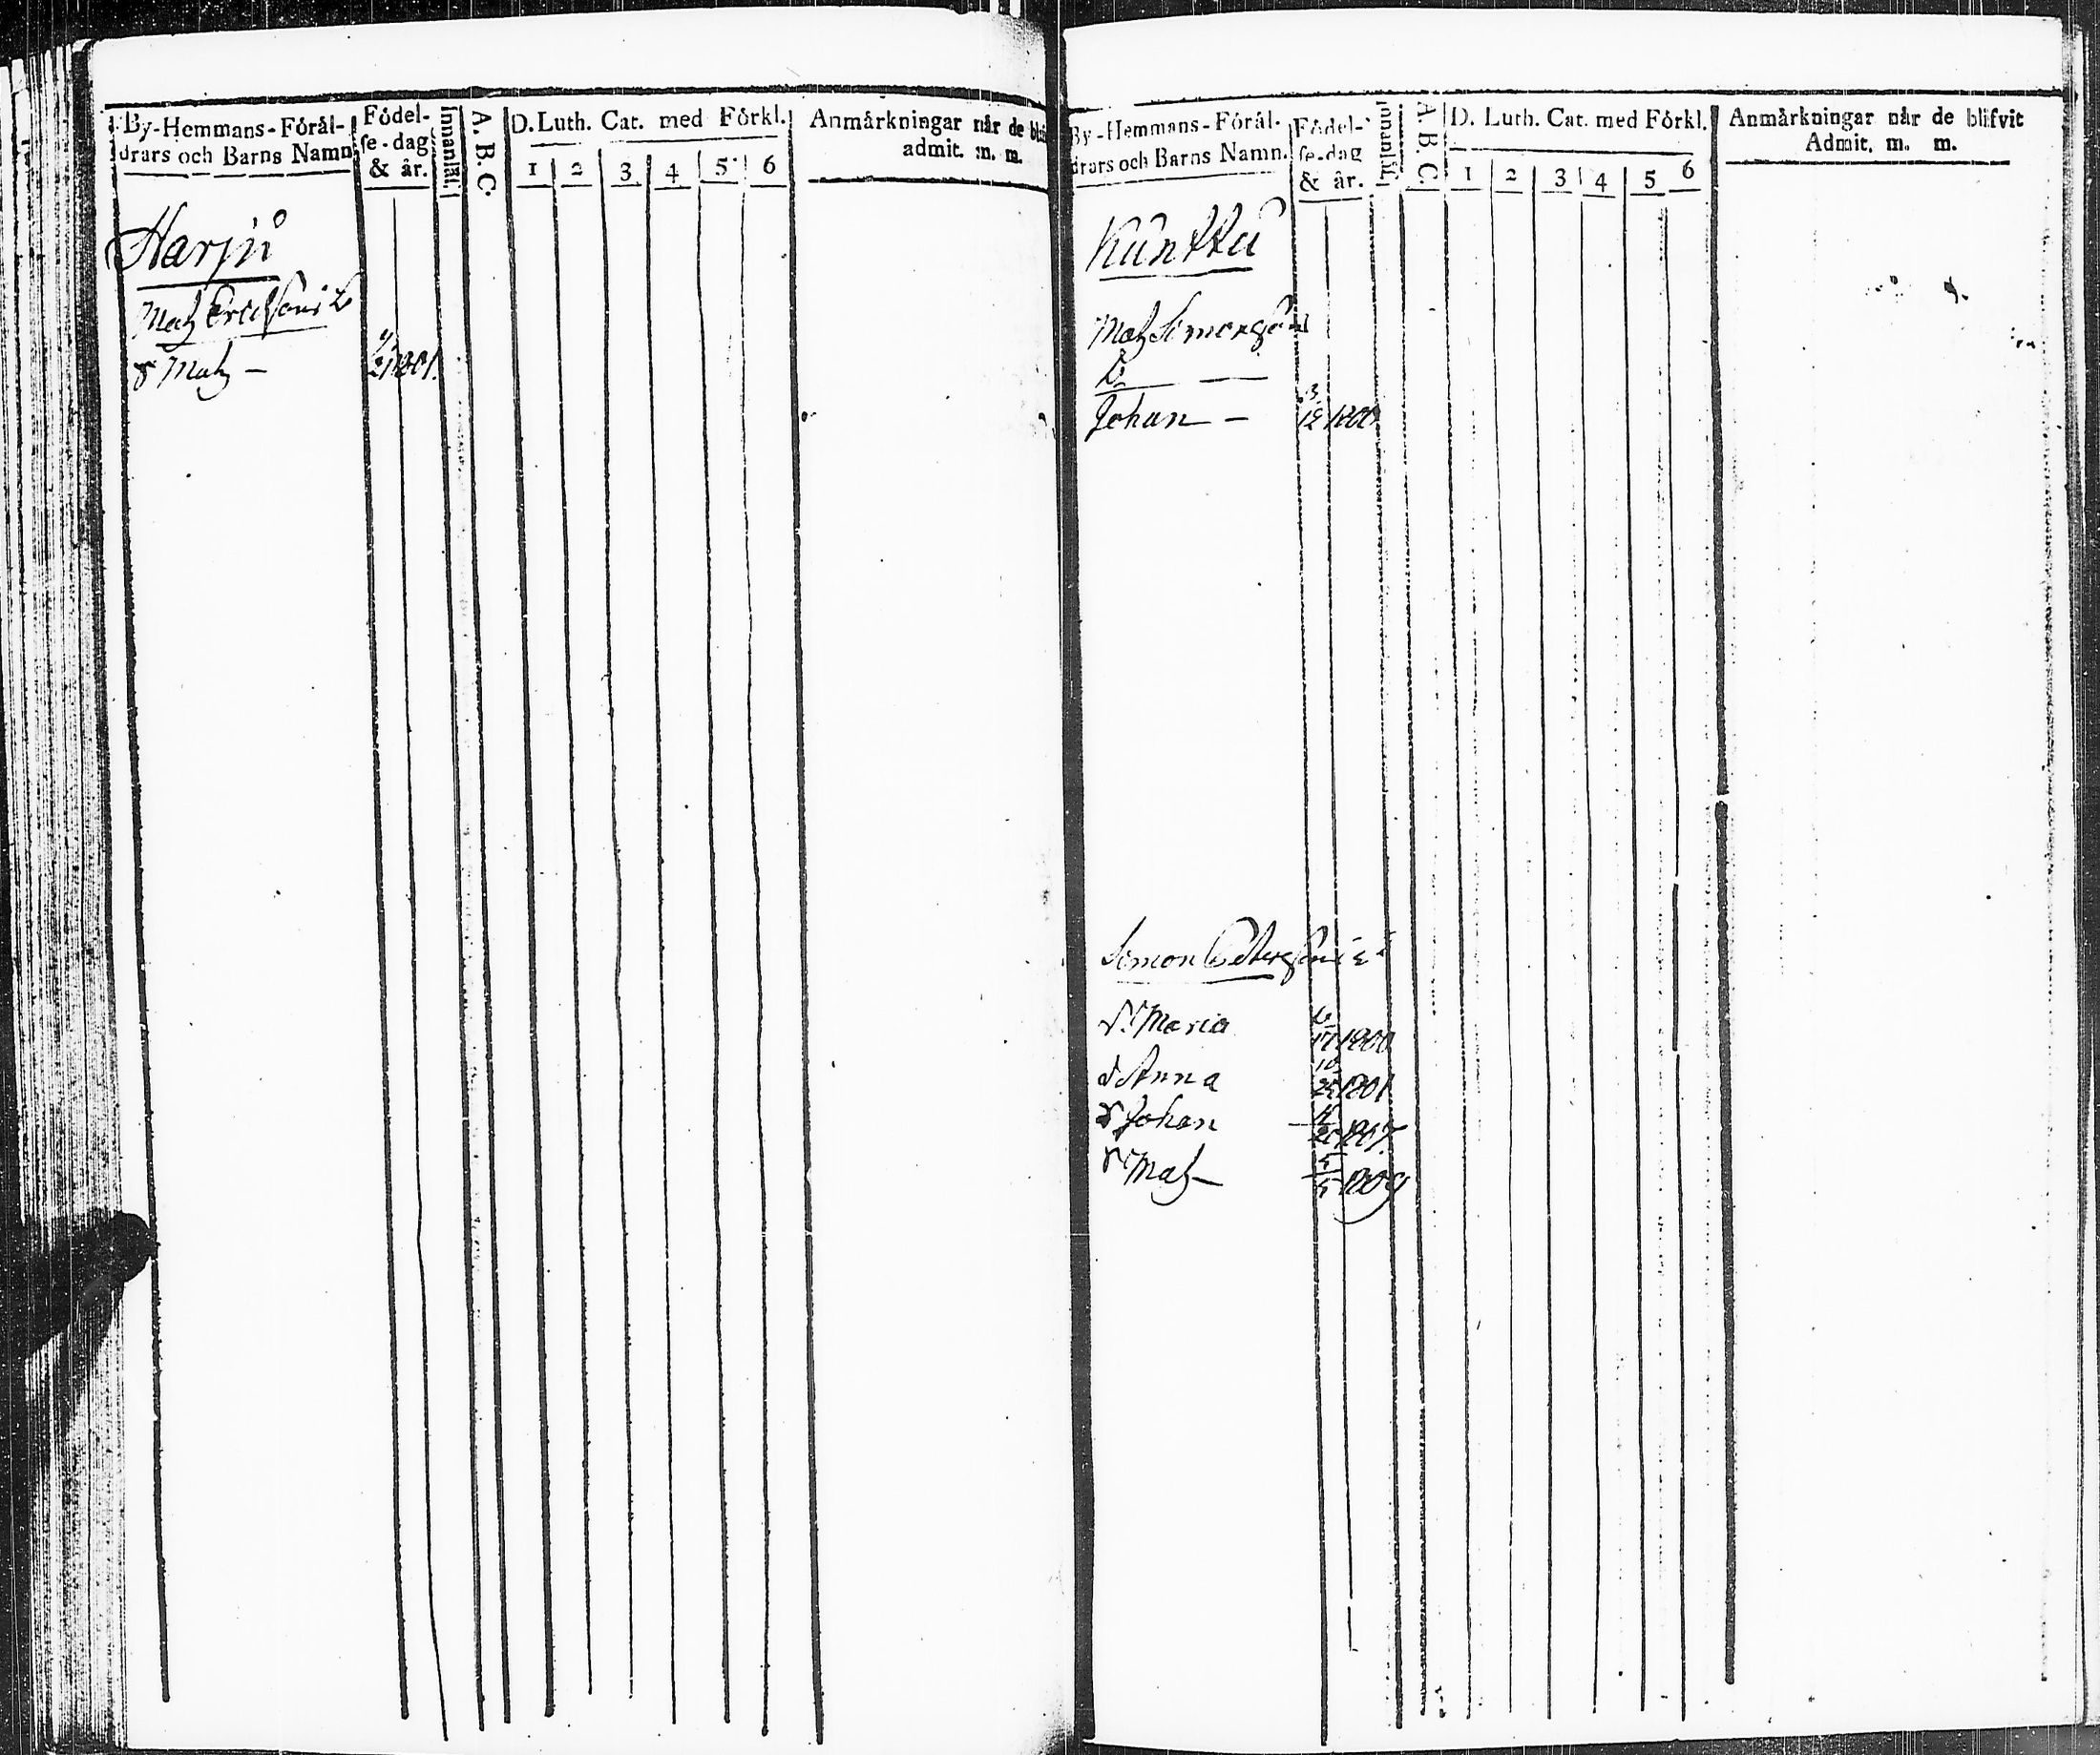 By-Hemmans-Föräl-
drars och Barns Namn
Födel-
se-dag
& år.
Innanläs.
A. B. C.
D. Luth. Cat. med Förkl.
1 2 3 4 5 6
Anmärkningar når de
admit. m. m.
Harju
Matz Ericsson
Matz – 1801.
By-Hemmans-Föräl-
drars och Barns Namn.
Födel-
se-dag
& år.
A. B. C.
D. Luth. Cat. med Förkl.
1 2 3 4 5 6
Anmärkningar når de blifvit
Admit. m. m.
Kunttu
Matz Simonsson
Johan – 3 12
Simon
Maria 17 1800
Anna 10 1801
Johan 20 1807
Matz – 5 1809